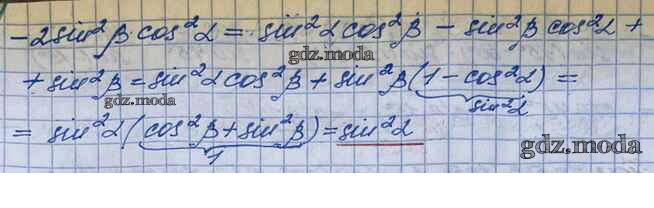 -2sin²β cos²α = sin²α cos²β - sin²β cos²α +
gdz.moda
+ sin²β = sin²α cos²β + sin²β(1 - cos²α) =
gdz.moda
sin²α
= sin²α(cos²β + sin²β) = sin²α
1
gdz.moda